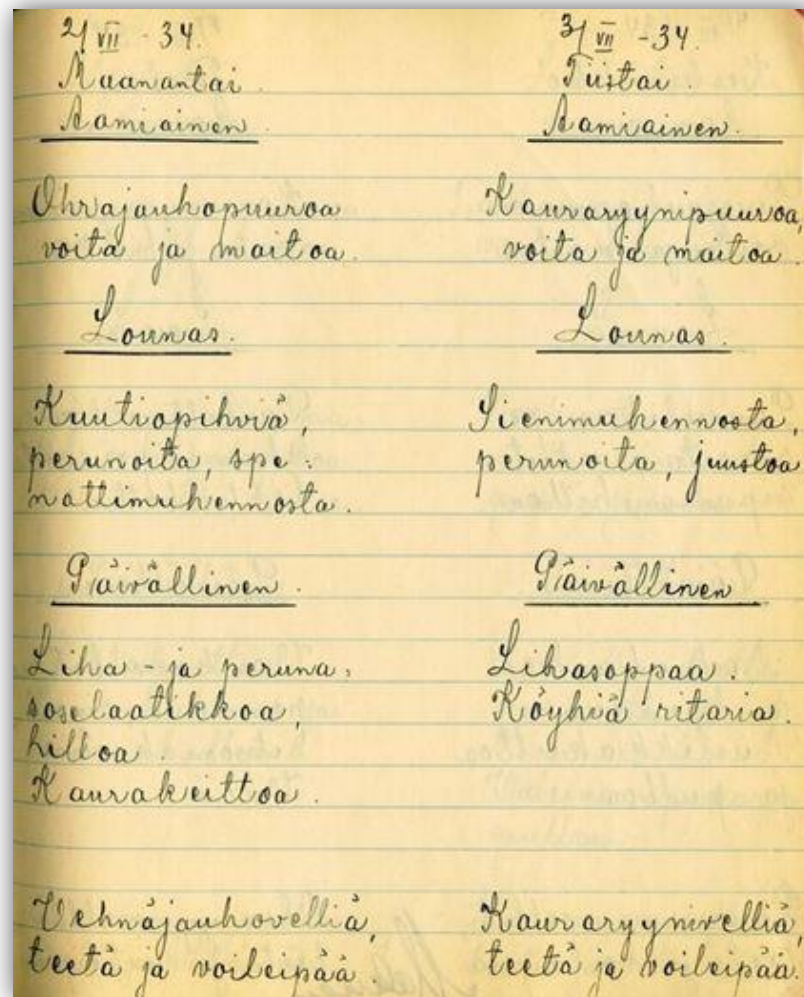 2/VII - 34.
Maanantai.
Aamiainen.
Ohrajauhopuuroa
voita ja maitoa.
Lounas.
Kuutiopihviä,
perunoita, spe:
nattimuhennosta.
Päivällinen.
Liha - ja peruna:
soselaatikkoa,
hilloa.
Kaurakeittoa.
Vehnäjauhovelliä,
teetä ja voileipää.
3/VII - 34.
Tiistai.
Aamiainen.
Kauraryynipuuroa,
voita ja maitoa.
Lounas.
Sienimuhennosta,
perunoita, juustoa
Päivällinen
Lihasoppaa.
Köyhiä ritaria.
Kauraryynivelliä,
teetä ja voileipää.